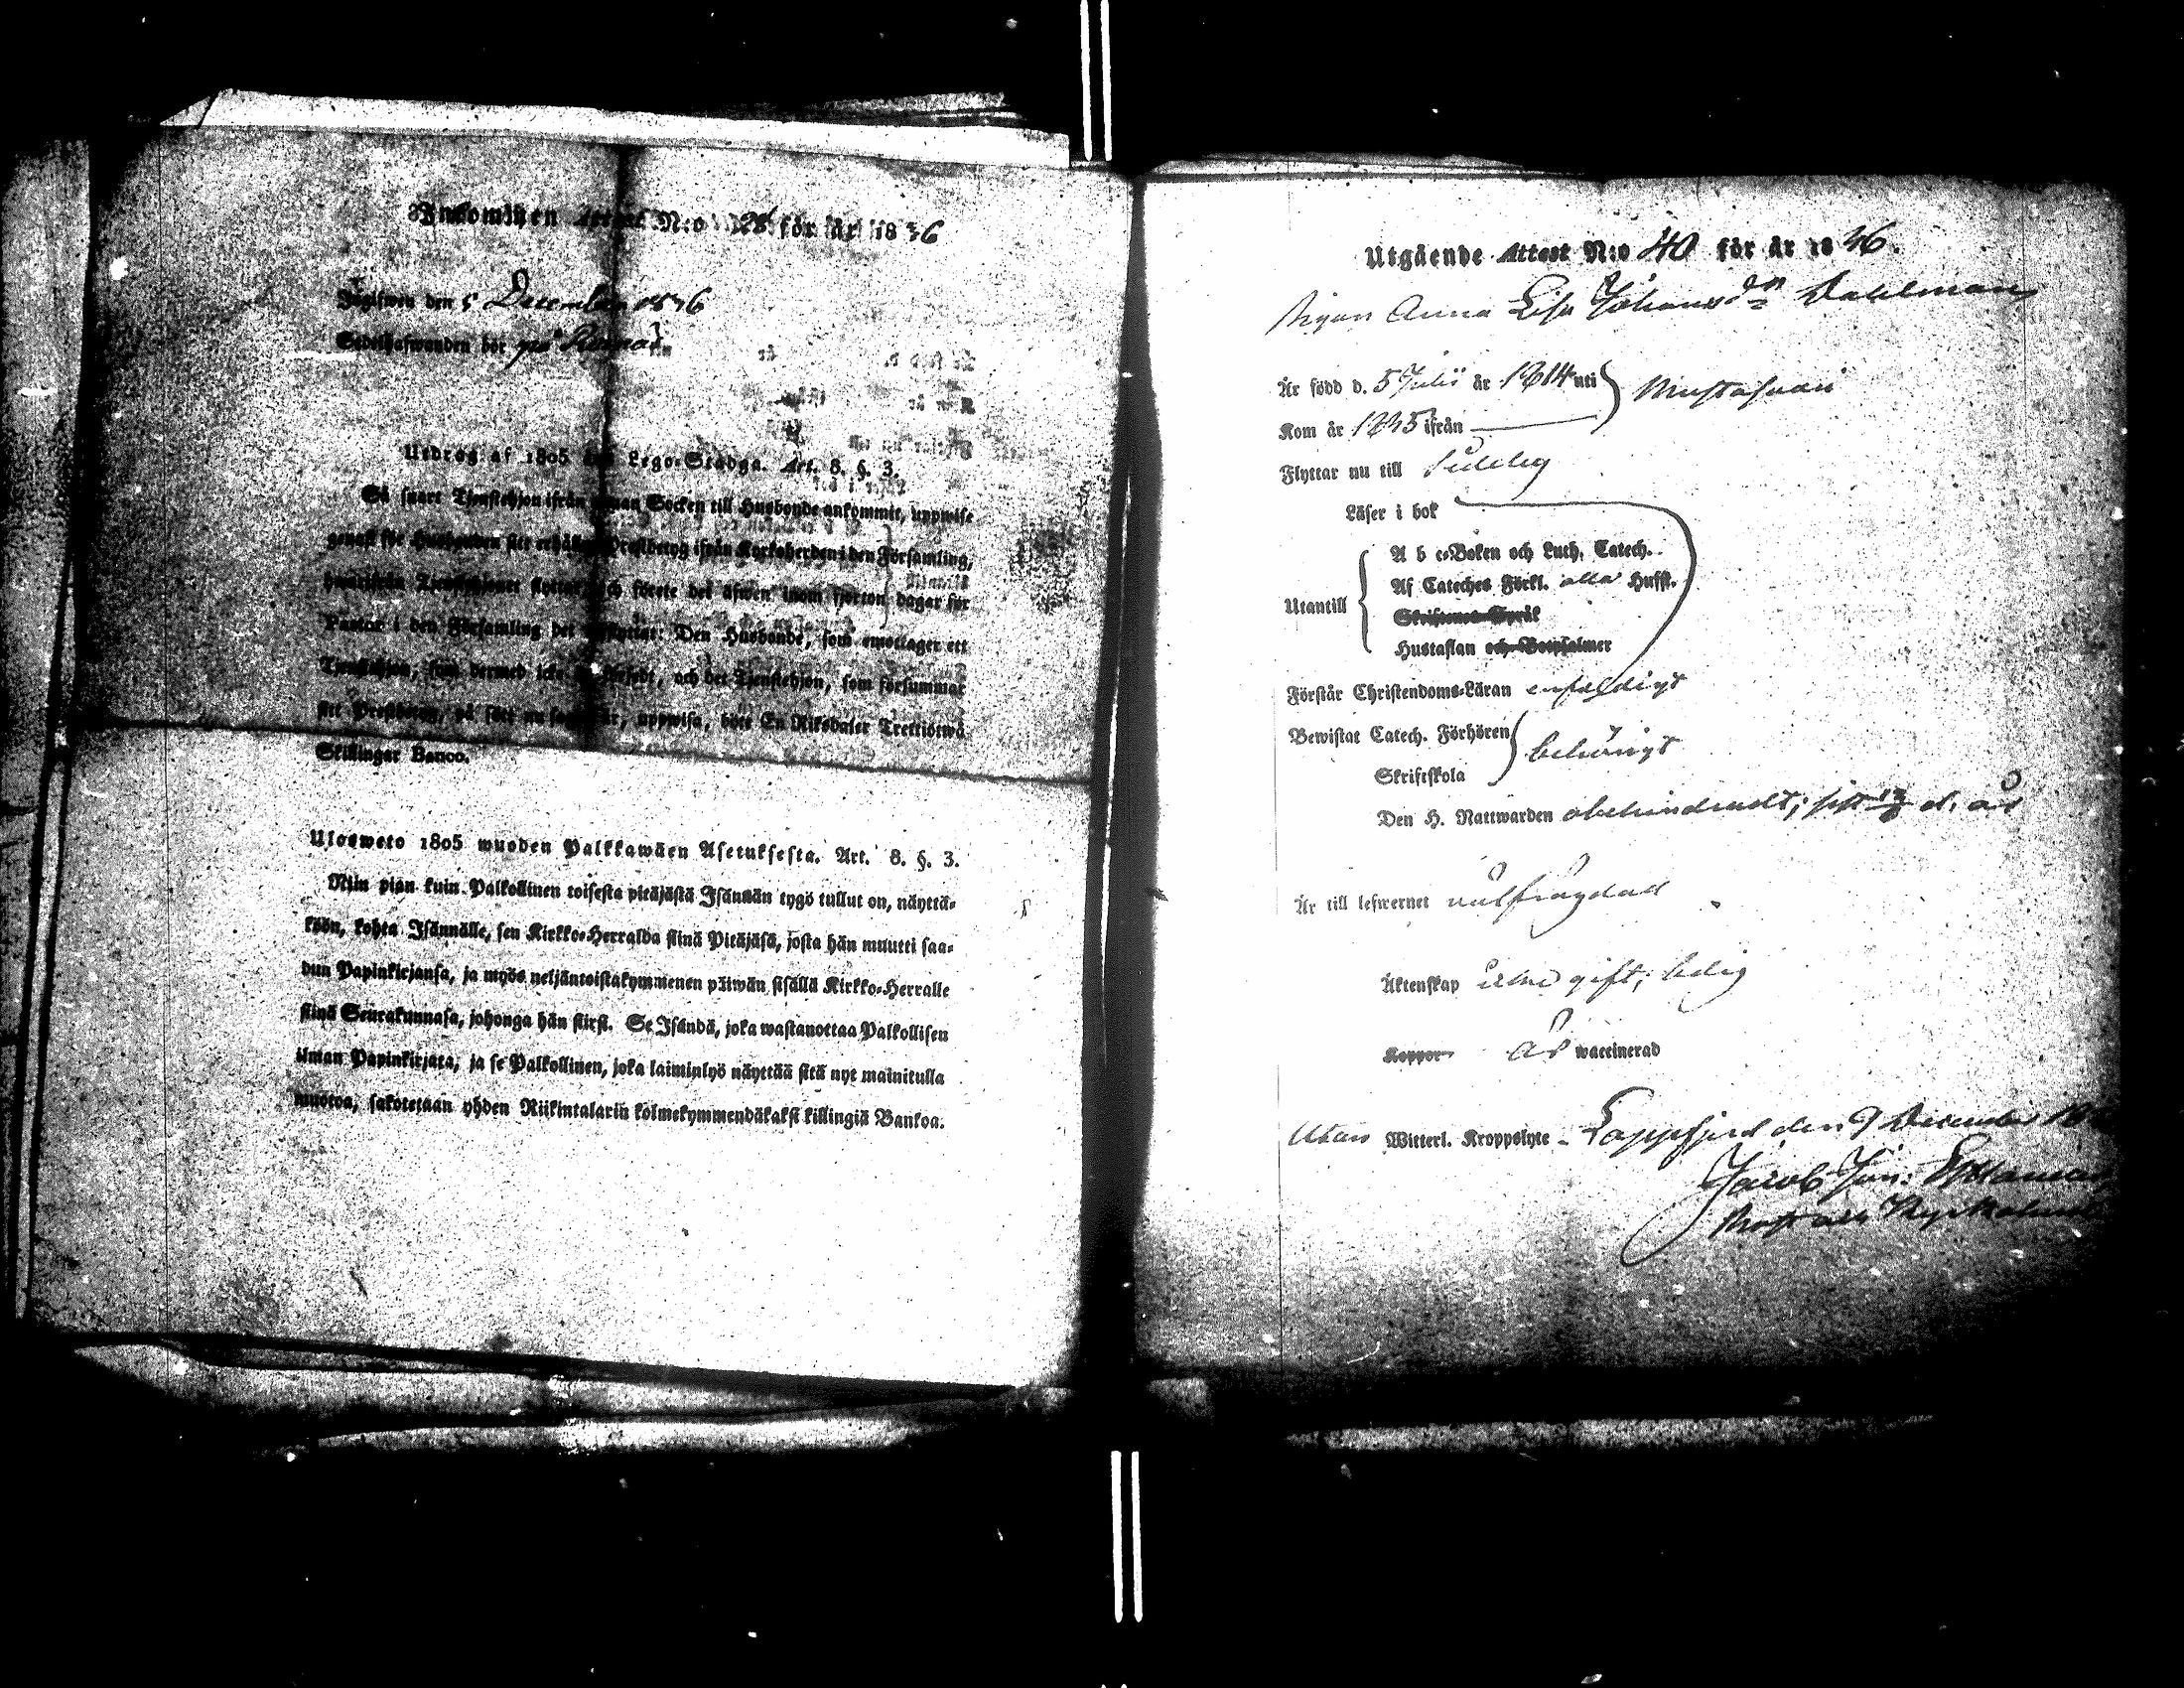 Inkommen Attest N:o 28 för år 1836
Ingifwen den 5 December 1836
Sedelhafwanden bor på
Utdrag af 1805 Lego-Stadga. Art. 8. §. 3.
Så snart Tjenstehjon ifrån annan Socken till Husbonde ankommit, uppwise
genast för Husbonden sitt erhållna Prestbetyg ifrån Kyrkoherden i den Församling,
hwarifrån Tjenstehjonet flyttat och förete det äfwen inom fjorton dagar för
Pastor i den Församling det Den Husbonde, som emottager ett
Tjenstehjon, som dermed icke försedt, och det Tjenstehjon, som försummar
sitt Prestbetyg, på sätt nu sagdt är, uppwisa, böte En Riksdaler Trettiotwå
Skillingar Banco.
Ulosweto 1805 wuoden Palkkawäen Asetuksesta. Art. 8. §. 3.
Niin pian kuin Palkollinen toisesta pitäjästä Isännän tygö tullut on, näyttä-
köön, kohta Isännälle, sen Kirkko-Herralda siinä Pitäjäsä, josta hän muutti saa-
dun Papinkirjansa, ja myös neljäntoistakymmenen päiwän sisällä Kirkko-Herralle
siinä Seurakunnasa, johonga hän siirst. Se Isändä, joka wastanottaa Palkollisen
ilman Papinkirjata, ja se Palkollinen, joka laiminlyö näyttää sitä nyt mainitulla
muotoa, sakotetaan yhden Riikintalarin kolmekymmendäkaksi killingiä Bankoa.
Utgående Attest N:o 40 för år 1836.
Pigan Anna Lisa Johansdr Dahlman
Är född d. 5 Julii år 1814 uti
Kom år 1835 ifrån } Mustasaari
Flyttar nu till
Läser i bok
A b c-Boken och Luth. Catech.
Af Cateches Förkl. alla Husst.
Utantill { Skriftenes Språk
Hustaflan och Botpsalmer
Förstår Christendoms-Läran enfaldigt
Bewistat Catech. Förhören
Skriftskola } behörigt
Den H. Nattwarden obehindradt; sist d. år
Är till lefwernet
Äktenskap gift; ledig
Koppor Är waccinerad
Utan Witterl. Kroppslyte - Lappfjerd den 9 December
Jacob Jon:
Prost och Kyrkoherde